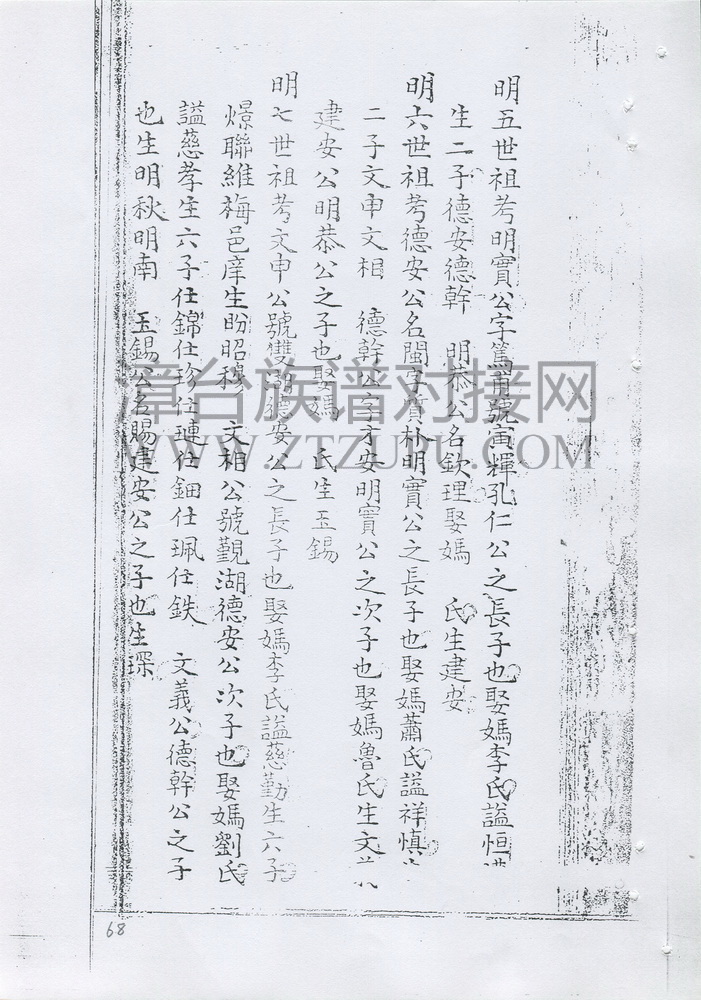 明五世祖考明實公字篤甫號寅輝孔仁公之長子也娶媽李氏謚恒
生二子德安德幹 明恭公名欽理娶媽 氏生建安
明六世祖考德安公名閩字質朴明實公之長子也娶媽蕭氏謚祥慎
二子文申文相 德幹公字才安明實公之次子也娶媽魯氏生文
建安公明恭公之子也娶媽 氏生玉錫
明七世祖考文申公號雙湖德安公之長子也娶媽李氏謚慈勤生六子
燝聯維梅邑庠生盼昭穆 文相公號觀湖德安公次子也娶媽劉氏
謚慈孝生六子仕錦仕珍仕璉仕鈿仕珮仕鉄 文義公德幹公之子
也生明秋明南 玉錫公名賜建安公之子也生琛
漳台族谱对接网
WWW.ZTZUPU.COM
68